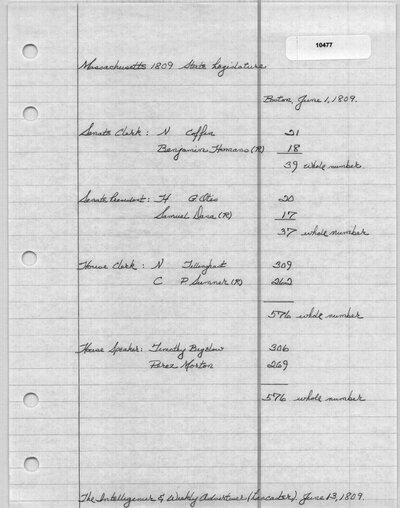 10477
Massachusetts 1809 State Legislature
Boston, June 1, 1809.
Senate Clerk: N Coffin 21
Benjamin Homans (R) 18
39 whole number
Senate President: H G Otis 20
Samuel Dana (R) 17
37 whole number
House Clerk: N Tillinghast 309
C P Sumner (R) 262
576 whole number
House Speaker: Timothy Bigelow 306
Perez Morton 269
576 whole number
The Intelligencer & Weekly Advertiser (Lancaster). June 13, 1809.